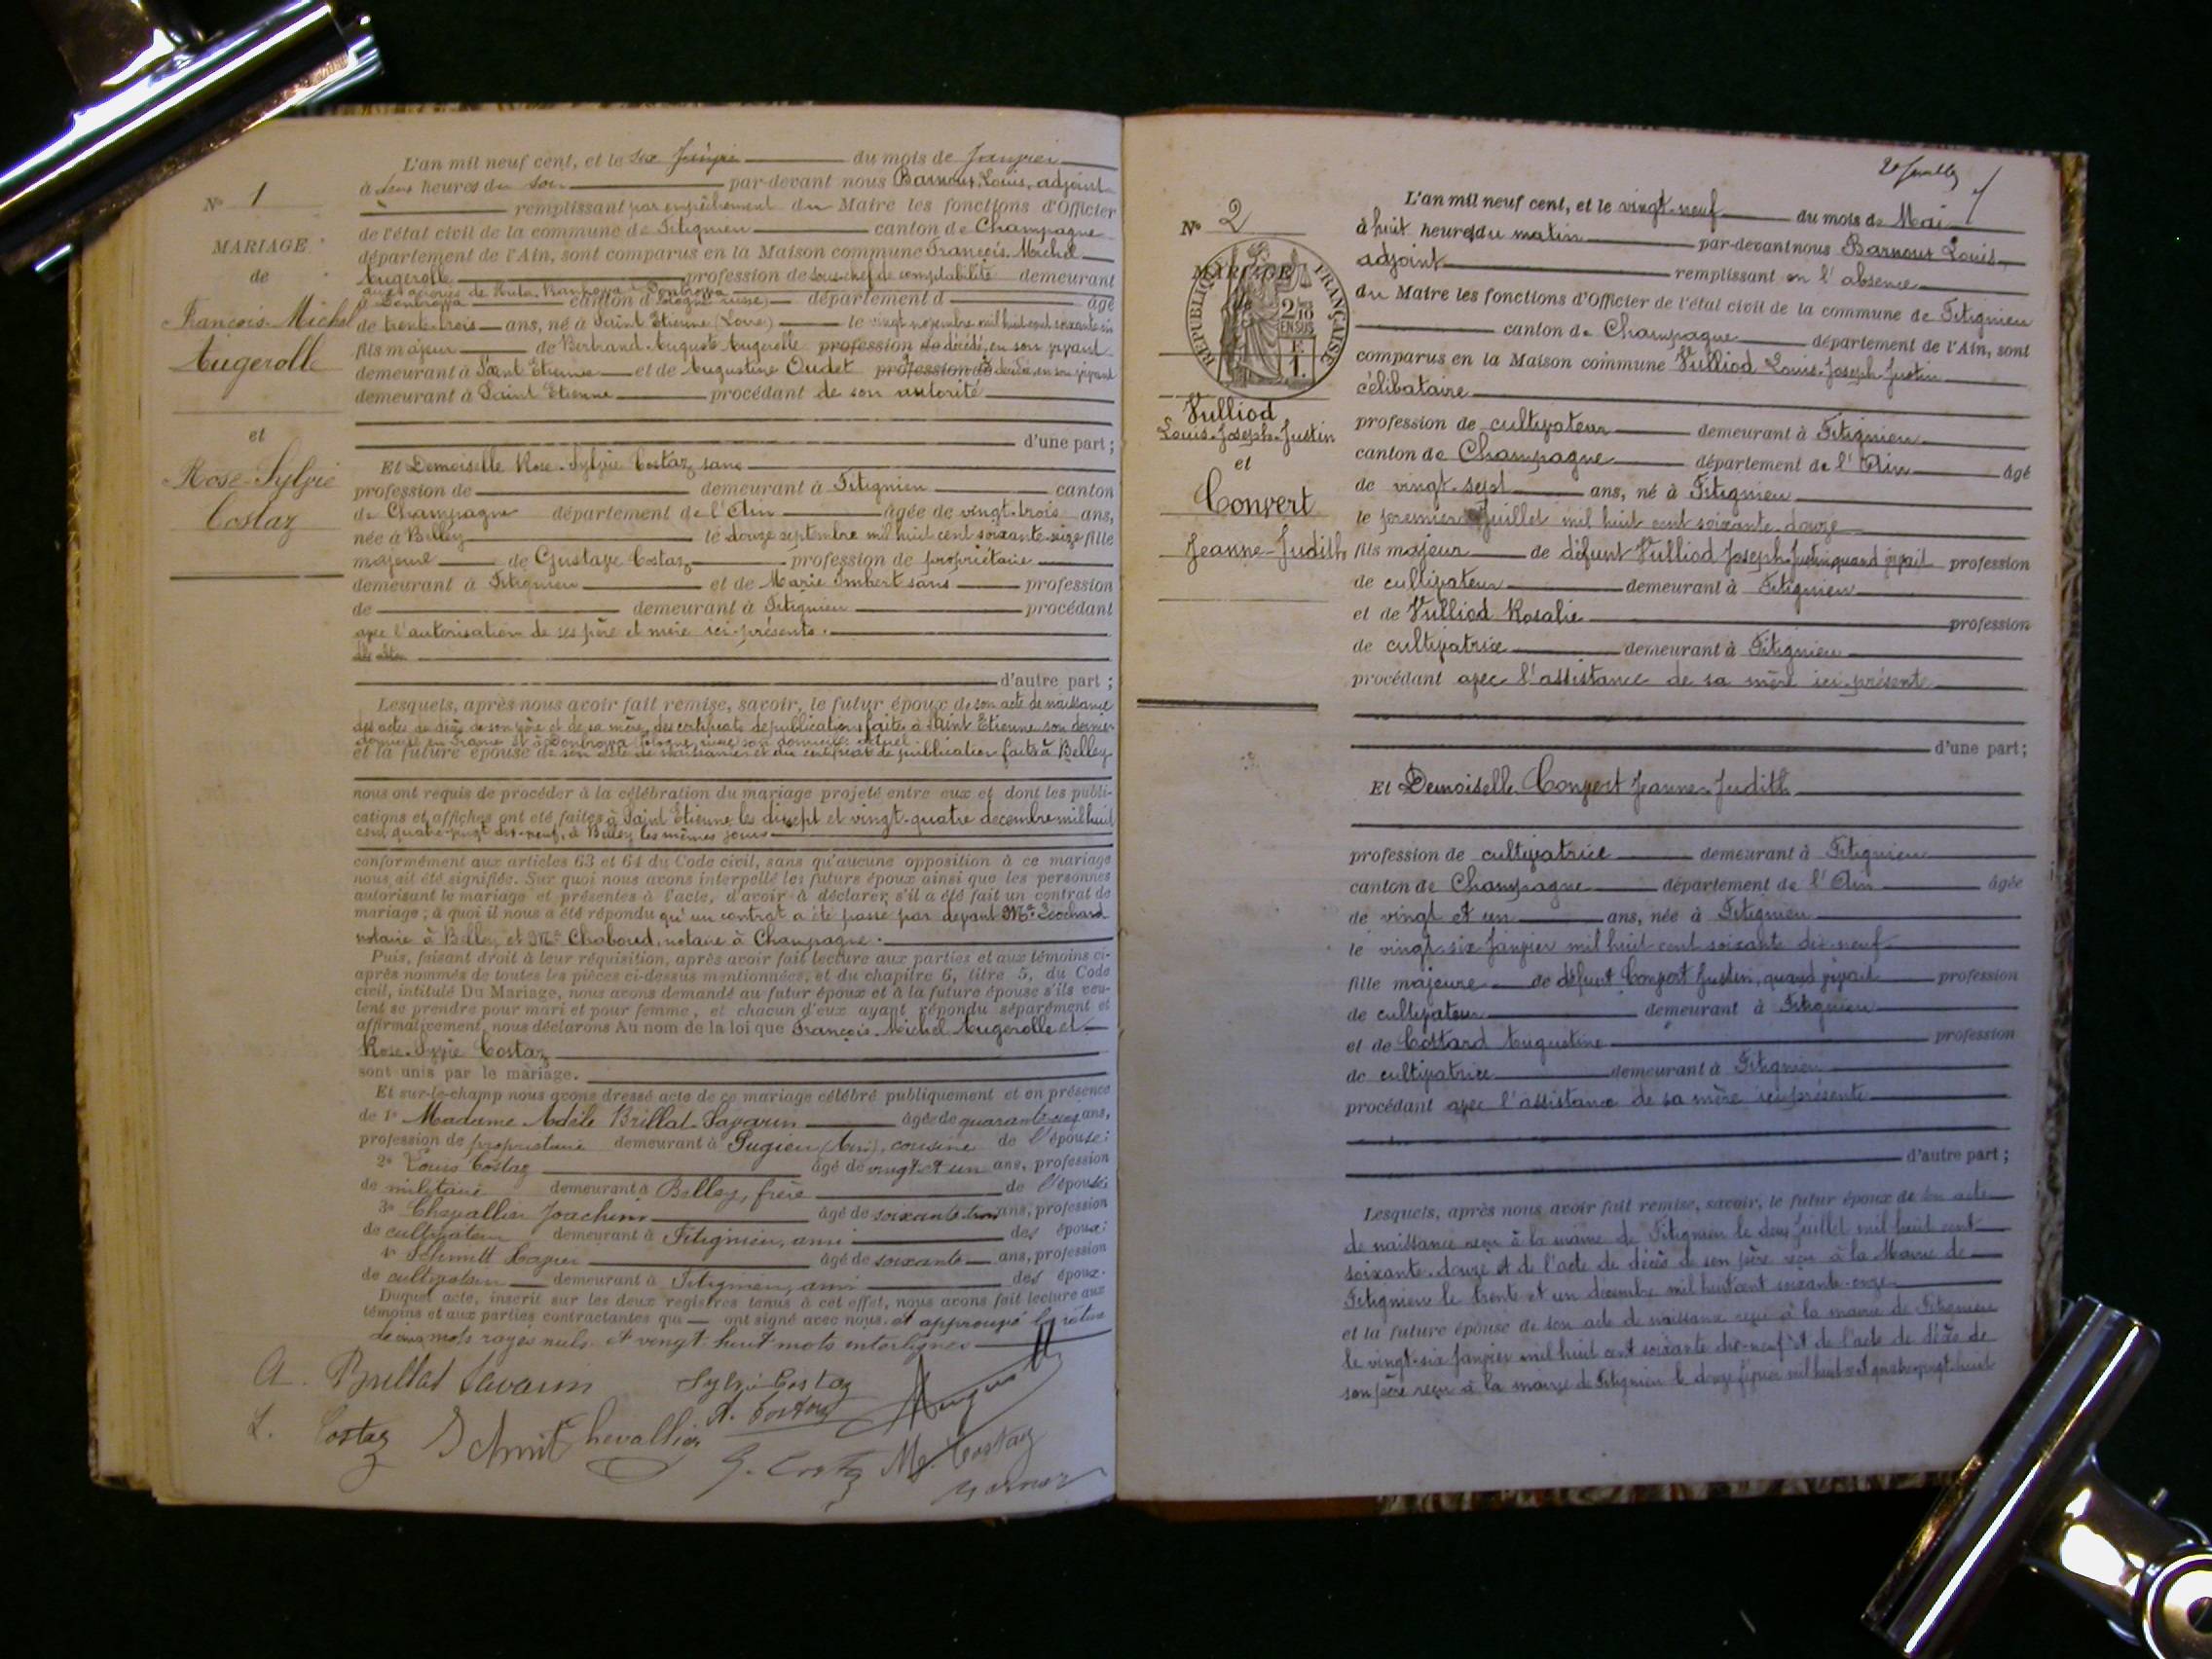 L'an mil neuf cent, et le six Janvier du mois de Janvier
à deux heures du soir par-devant nous Barnoux, Louis, adjoint
remplissant par empêchement du Maire les fonctions d'Officier
de l'état civil de la commune de Fitignieu canton de Champagne
département de l'Ain, sont comparus en la Maison commune François-Michel
Augerolle profession de sous-chef de comptabilité demeurant
aux aciéries de Huta-Bankowa à Dombrowa
à Dombrowa canton d Pologne russe département d âgé
de trente-trois ans, né à Saint Etienne (Loire) le vingt novembre mil huit cent soixante six
fils majeur de Bertrand Auguste Augerolle profession de décédé, en son vivant
demeurant à Saint Etienne et de Augustine Oudet profession de décédée, en son vivant
demeurant à Saint Etienne procédant de son autorité
d'une part ;
Et Demoiselle Rose-Sylvie Costaz, sans
profession de demeurant à Fitignieu canton
de Champagne département de l'Ain âgée de vingt-trois ans,
née à Belley le douze septembre mil huit cent soixante-seize fille
majeure de Gustave Costaz profession de propriétaire
demeurant à Fitignieu et de Marie Imbert sans profession
de demeurant à Fitignieu procédant
avec l'autorisation de ses père et mère ici-présents.
d'autre part ;
Lesquels, après nous avoir fait remise, savoir, le futur époux de son acte de naissance
des actes de décès de son père et de sa mère, des certificats de publications faites à Saint Etienne son dernier
domicile en France et à Dombrowa (Pologne russe) son domicile actuel
et la future épouse de son acte de naissance et du certificat de publication faite à Belley
nous ont requis de procéder à la célébration du mariage projeté entre eux et dont les publi-
cations et affiches ont été faites à Saint Etienne les dix sept et vingt-quatre décembre mil huit
cent quatre-vingt dix-neuf, à Belley les mêmes jours
conformément aux articles 63 et 64 du Code civil, sans qu'aucune opposition à ce mariage
nous ait été signifiée. Sur quoi nous avons interpellé les futurs époux ainsi que les personnes
autorisant le mariage et présentes à l'acte, d'avoir à déclarer s'il a été fait un contrat de
mariage ; à quoi il nous a été répondu qu'un contrat a été passé par devant Me
notaire à Belley et Me Chaboud, notaire à Champagne.
Puis, faisant droit à leur réquisition, après avoir fait lecture aux parties et aux témoins ci-
après nommés de toutes les pièces ci-dessus mentionnées, et du chapitre 6, titre 5, du Code
civil, intitulé Du Mariage, nous avons demandé au futur époux et à la future épouse s'ils veu-
lent se prendre pour mari et pour femme, et chacun d'eux ayant répondu séparément et
affirmativement, nous déclarons Au nom de la loi que François-Michel Augerolle et
Rose-Sylvie Costaz
sont unis par le mariage.
Et sur-le-champ nous avons dressé acte de ce mariage célébré publiquement et en présence
de 1° Madame Adèle Brillat-Savarin âgée de ans,
profession de propriétaire demeurant à Pugieu (Ain), cousine de l'épouse ;
2° Louis Costaz âgé de vingt et un ans, profession
de militaire demeurant à Belley, frère de l'épouse
3° Chevallier Joachim âgé de soixante trois ans, profession
de cultivateur demeurant à Fitignieu, ami des époux ;
4° Schmitt Xavier âgé de soixante ans, profession
de cultivateur demeurant à Fitignieu, ami des époux.
Duquel acte, inscrit sur les deux registres tenus à cet effet, nous avons fait lecture aux
témoins et aux parties contractantes qui ont signé avec nous. et approuvé la rature
de cinq mots rayés nuls et vingt-huit mots interlignes
A. Brillat Savarin Sylvie Costaz
L. Costaz Schmitt Chevallier A. Costaz
G. Costaz M. Costaz
Barnoux
N° 1
MARIAGE
de
François-Michel
Augerolle
et
Rose-Sylvie
Costaz
L'an mil neuf cent, et le vingt-neuf du mois de Mai
à huit heures du matin par-devant nous Barnoux Louis,
adjoint remplissant en l'absence
du Maire les fonctions d'Officier de l'état civil de la commune de Fitignieu
canton de Champagne département de l'Ain, sont
comparus en la Maison commune Vulliod Louis-Joseph-Justin
célibataire
profession de cultivateur demeurant à Fitignieu
canton de Champagne département de l'Ain âgé
de vingt-sept ans, né à Fitignieu
le premier Juillet mil huit cent soixante-douze
fils majeur de défunt Vulliod Joseph-Justin quand vivait profession
de cultivateur demeurant à Fitignieu
et de Vulliod Rosalie profession
de cultivatrice demeurant à Fitignieu
procédant avec l'assistance de sa mère ici-présente
d'une part ;
Et Demoiselle Convert Jeanne-Judith
profession de cultivatrice demeurant à Fitignieu
canton de Champagne département de l'Ain âgée
de vingt et un ans, née à Fitignieu
le vingt-six Janvier mil huit cent soixante dix-neuf
fille majeure de défunt Convert Justin, quand vivait profession
de cultivateur demeurant à Fitignieu
et de Costard Augustine profession
de cultivatrice demeurant à Fitignieu
procédant avec l'assistance de sa mère ici présente
d'autre part ;
Lesquels, après nous avoir fait remise, savoir, le futur époux de son acte
de naissance reçu à la mairie de Fitignieu le deux Juillet mil huit cent
soixante-douze et de l'acte de décès de son père reçu à la Mairie de
Fitignieu le trente et un décembre mil huit cent soixante-onze
et la future épouse de son acte de naissance reçu à la mairie de Fitignieu
le vingt-six Janvier mil huit cent soixante dix-neuf et de l'acte de décès de
son père reçu à la mairie de Fitignieu le douze février mil huit cent quatre-vingt-huit
N° 2
MARIAGE
de
RÉPUBLIQUE FRANÇAISE
2/10
EN SUS
F.
1.
Vulliod
Louis-Joseph-Justin
et
Convert
Jeanne-Judith